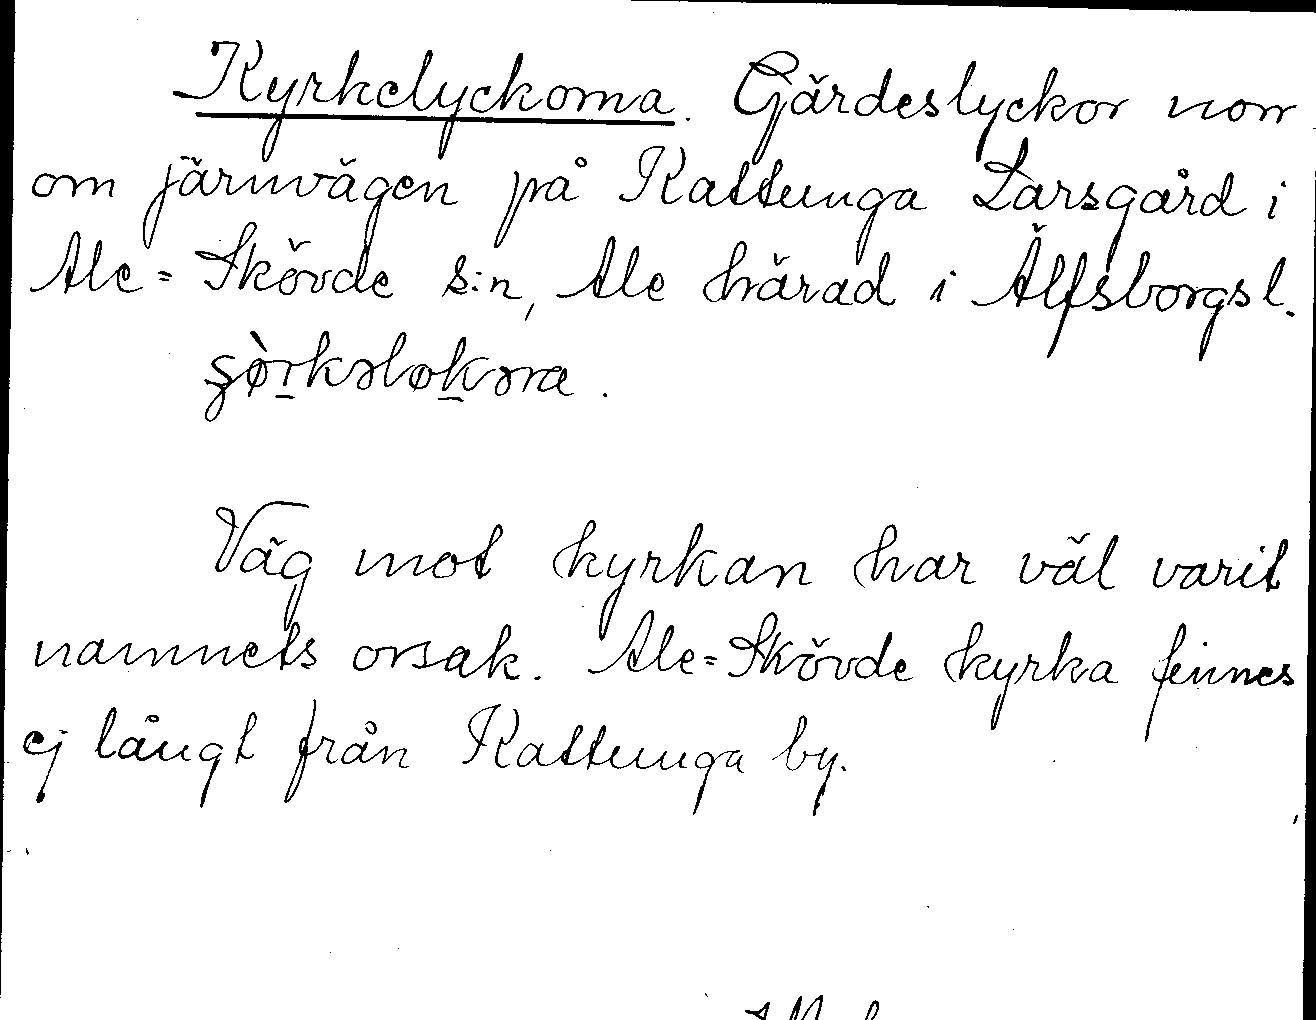 Kyrkelyckorna. Gärdeslyckor norr
om järnvägen på Kattunga Larsgård i
Ale=Skövde s:n, Ale härad i Älfsborgsl.
Väg mot kyrkan har väl varit
namnets orsak. Ale=Skövde kyrka finnes
ej långt från Kattunga by.